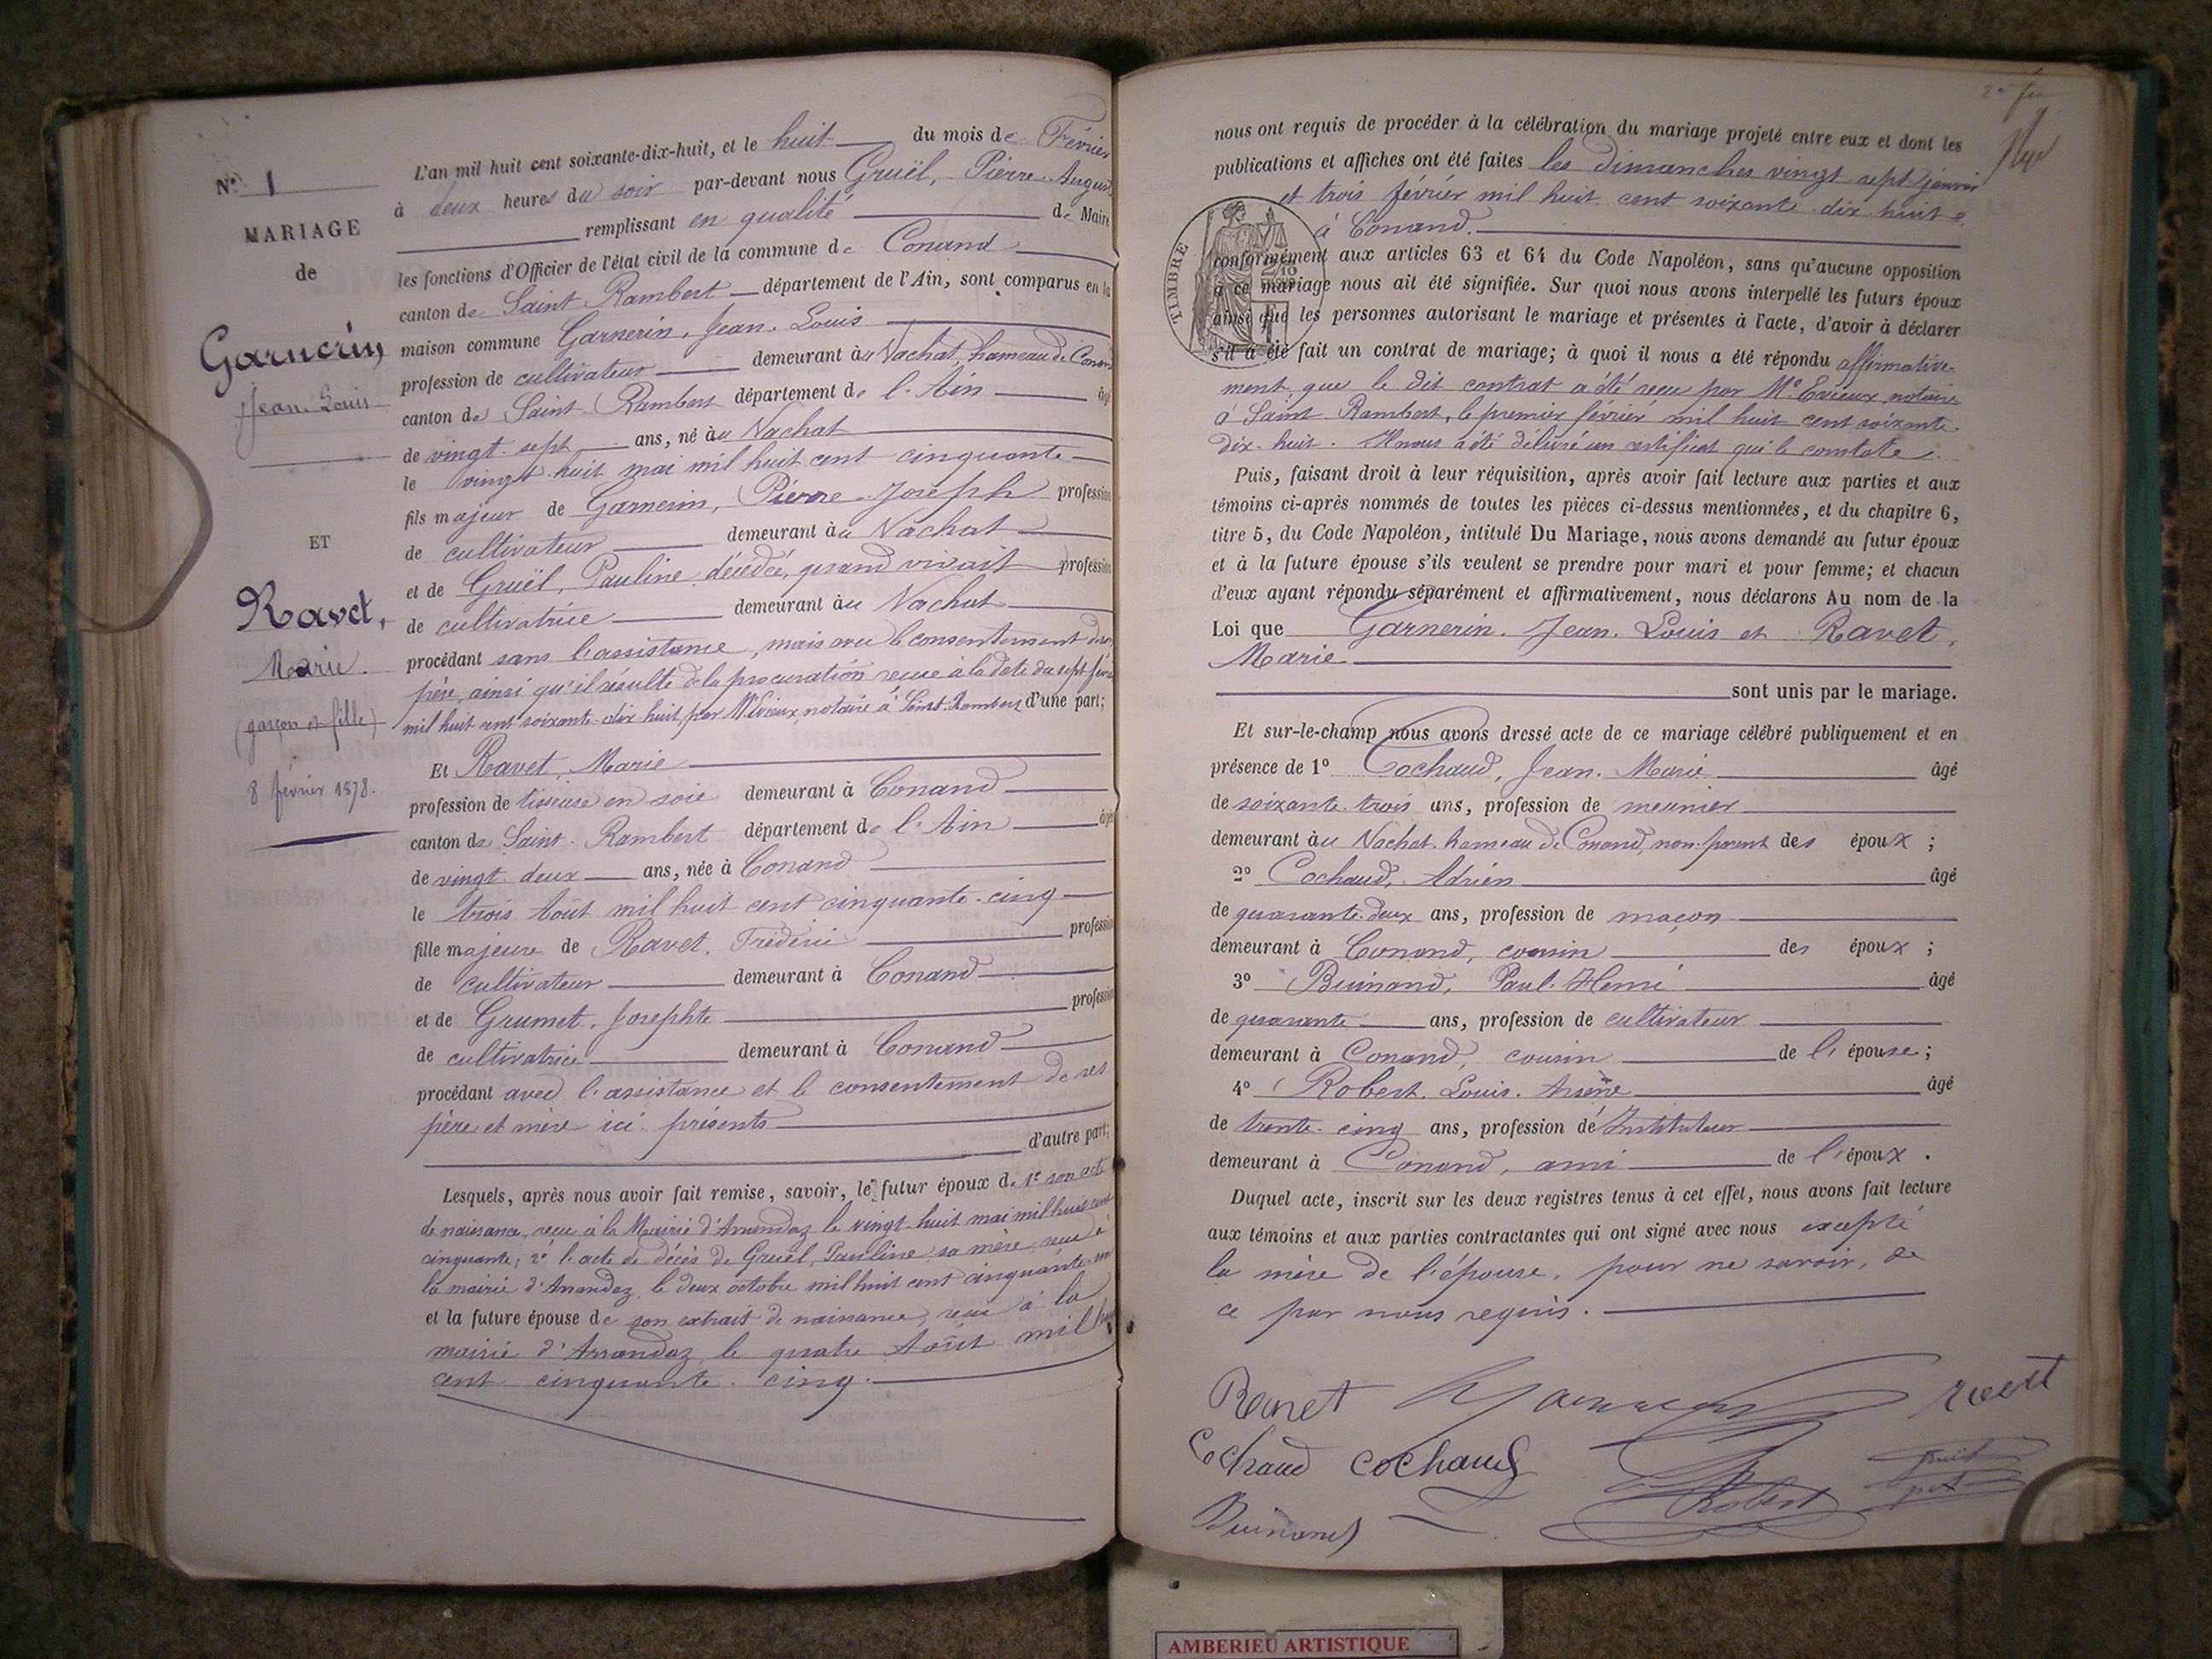 N° 1
MARIAGE
de
Garnerin
Jean-Louis
ET
Ravet,
Marie.
(garçon et fille)
8 février 1878.
L'an mil huit cent soixante-dix-huit, et le huit du mois de Février
à deux heures du soir par-devant nous Gruël, Pierre-August
remplissant en qualité de Maire
les fonctions d'Officier de l'état civil de la commune de Conand
canton de Saint Rambert département de l'Ain, sont comparus en la
maison commune Garnerin, Jean-Louis
profession de cultivateur demeurant au Nachat, hameau de Conand
canton de Saint-Rambert département de l'Ain âgé
de vingt-sept ans, né au Nachat
le vingt-huit mai mil huit cent cinquante
fils majeur de Garnerin, Pierre-Joseph profession
de cultivateur demeurant au Nachat
et de Gruël, Pauline, décédée, quand vivait profession
de cultivatrice demeurant au Nachat
procédant sans l'assistance, mais avec le consentement de son
père, ainsi qu'il résulte de la procuration reçue à la date du sept fév
mil huit cent soixante-dix-huit, par Me Evieux, notaire à Saint-Rambert d'une part;
Et Ravet, Marie
profession de tisseuse en soie demeurant à Conand
canton de Saint-Rambert département de l'Ain âgée
de vingt-deux ans, née à Conand
le trois Août mil huit cent cinquante-cinq
fille majeure de Ravet, Frédéric profession
de cultivateur demeurant à Conand
et de Grumet, Josephte profession
de cultivatrice demeurant à Conand
procédant avec l'assistance et le consentement de ses
père et mère ici présents
d'autre part;
Lesquels, après nous avoir fait remise, savoir, le futur époux de 1° son acte
de naissance, reçu à la Mairie d'Arrandaz le vingt-huit mai mil huit cent
cinquante; 2° l'acte de décès de Gruël, Pauline, sa mère, reçu à
la mairie d'Arrandaz, le deux octobre mil huit cent cinquante-un
et la future épouse de son extrait de naissance, reçu à la
mairie d'Arrandaz, le quatre Août mil huit
cent cinquante-cinq.
nous ont requis de procéder à la célébration du mariage projeté entre eux et dont les
publications et affiches ont été faites les dimanches vingt-sept janvier
et trois février mil huit cent soixante-dix-huit
à Conand.
TIMBRE
conformément aux articles 63 et 64 du Code Napoléon, sans qu'aucune opposition
à ce mariage nous ait été signifiée. Sur quoi nous avons interpellé les futurs époux
ainsi que les personnes autorisant le mariage et présentes à l'acte, d'avoir à déclarer
s'il a été fait un contrat de mariage; à quoi il nous a été répondu affirmative-
ment que le dit contrat a été reçu par Me Evieux, notaire
à Saint Rambert, le premier février mil huit cent soixante-
dix-huit. Il nous a été délivré un certificat qui le constate.
Puis, faisant droit à leur réquisition, après avoir fait lecture aux parties et aux
témoins ci-après nommés de toutes les pièces ci-dessus mentionnées, et du chapitre 6,
titre 5, du Code Napoléon, intitulé Du Mariage, nous avons demandé au futur époux
et à la future épouse s'ils veulent se prendre pour mari et pour femme; et chacun
d'eux ayant répondu séparément et affirmativement, nous déclarons Au nom de la
Loi que Garnerin, Jean-Louis et Ravet,
Marie
sont unis par le mariage.
Et sur-le-champ nous avons dressé acte de ce mariage célébré publiquement et en
présence de 1° Cochaud, Jean-Marie âgé
de soixante-trois ans, profession de meunier
demeurant au Nachat, hameau de Conand, non-parent des époux;
2° Cochaud, Adrien âgé
de quarante-deux ans, profession de maçon
demeurant à Conand, cousin des époux;
3° Buinand, Paul-Henri âgé
de quarante ans, profession de cultivateur
demeurant à Conand, cousin de l'épouse;
4° Robert, Louis-Arsène âgé
de trente-cinq ans, profession d'Instituteur
demeurant à Conand, ami de l'époux.
Duquel acte, inscrit sur les deux registres tenus à cet effet, nous avons fait lecture
aux témoins et aux parties contractantes qui ont signé avec nous excepté
la mère de l'épouse, pour ne savoir, de
ce par nous requis.
Ravet
Cochaud cochaud Robert
Buinand
AMBERIEU ARTISTIQUE